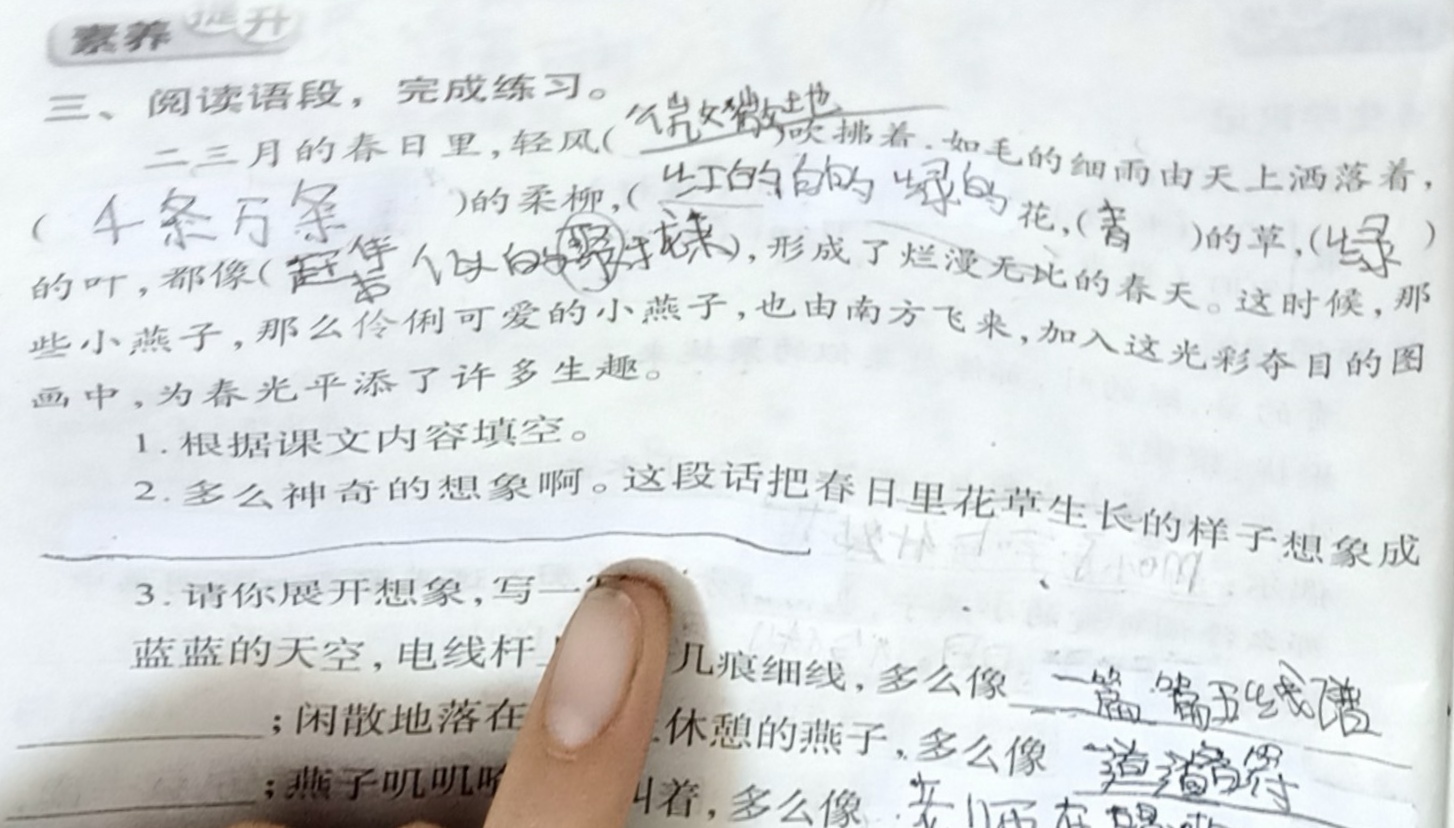 素养提升
三、阅读语段，完成练习。
二三月的春日里,轻风(微微地)吹拂着,如毛的细雨由天上洒落着,
(千条万条)的柔柳,(红的白的绿的花,(青)的草,(绿)
的叶,都像(赶集似的聚拢来),形成了烂漫无比的春天。这时候,那
些小燕子,那么伶俐可爱的小燕子,也由南方飞来,加入这光彩夺目的图
画中,为春光平添了许多生趣。
1.根据课文内容填空。
2.多么神奇的想象啊。这段话把春日里花草生长的样子想象成
3.请你展开想象,写一
蓝蓝的天空,电线杆 几痕细线,多么像 一篇篇五线谱
;闲散地落在 休憩的燕子,多么像
;燕子叽叽 叫着,多么像